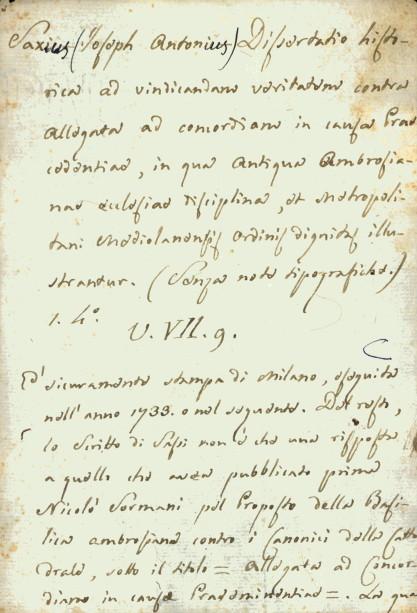 Saxius (Joseph Antonius) Dissertatio histo-
rica ad vindicandam veritatem contra
Allegata ad concordiam in causa Prae
cedentiae, in qua Antiqua Ambrosia-
nae ecclesiae disciplina, et Metropoli-
tani Mediolanensis Ordinis dignitas illu-
strantur. (Senza note tipografiche.)
1. 4.º
U. VII. 9.
E' sicuramente stampa di Milano, eseguita
nell'anno 1733. o nel seguente. Del resto,
lo scritto di Sassi non è che una risposta
a quello che avea pubblicato prima
Nicolò Sormani pel Proposto della Basi-
lica ambrosiana contro i Canonici della Catte
drale, sotto il titolo = Allegata ad Concor-
diam in causa Praeeminentiae =. La qua